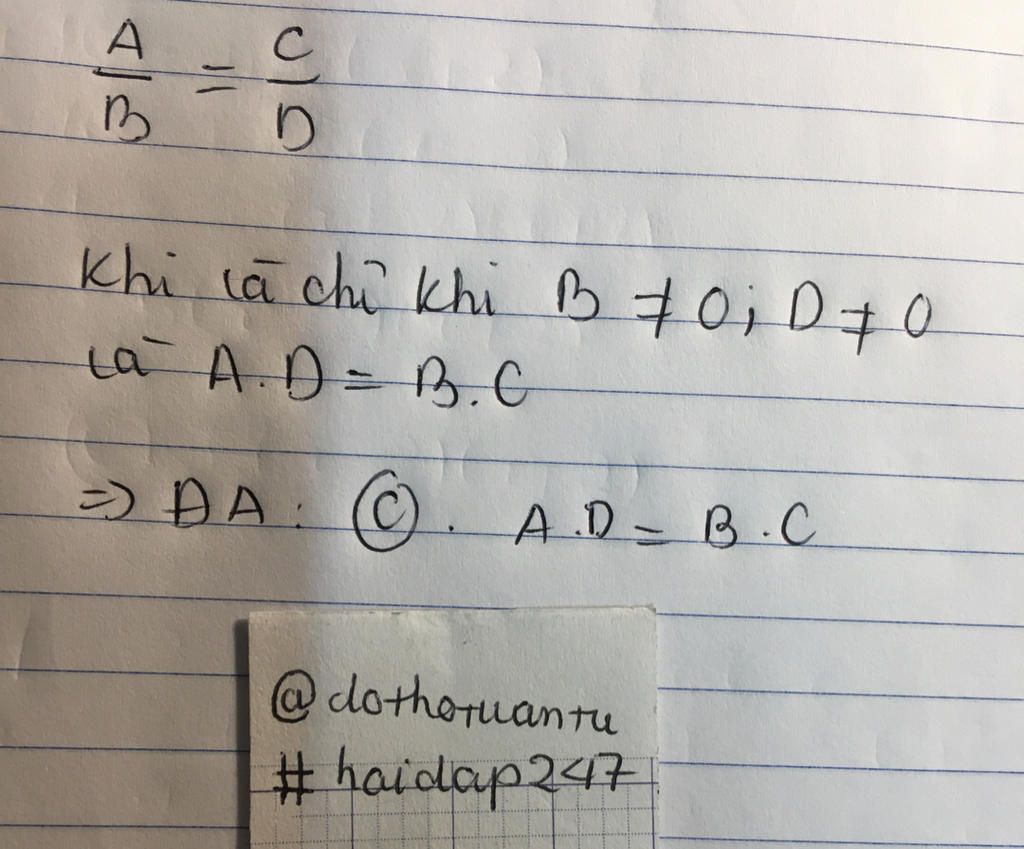 A/B = C/D
Khi và chỉ khi B ≠ 0; D ≠ 0
và A.D = B.C
=> ĐA: Ⓒ. A.D = B.C
@dothotuantu
#hoidap247